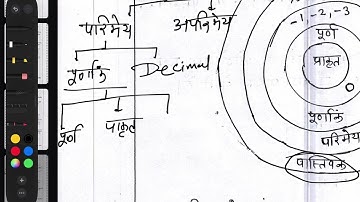 परिमेय
अपरिमेय
पूर्णांक
Decimal
पूर्ण
प्राकृत
-1, -2, -3
पूर्ण
प्राकृत
पूर्णांक
परिमेय
वास्तविक